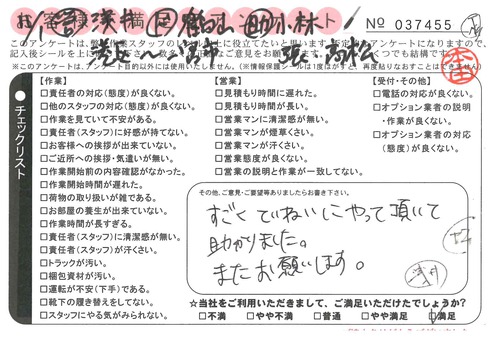 お客様満足アンケート
No 037455
このアンケートは、弊社作業スタッフのレベル向上に役立てたいと思います。
記入後シールを
※このアンケートは、アンケート目的以外には使用いたしません。(※情報保護シールは1度はがすと、再度貼りなおすことはできません)
チェックリスト
【作業】
□責任者の対応(態度)が良くない。
□他のスタッフの対応(態度)が良くない。
□作業を見ていて不安がある。
□責任者(スタッフ)に好感が持てない。
□お客様への挨拶が出来ていない。
□ご近所への挨拶・気遣いが無い。
□作業開始前の内容確認がなかった。
□作業開始時間が遅れた。
□荷物の取り扱いが雑である。
□お部屋の養生が出来ていない。
□作業時間が長すぎる。
□責任者(スタッフ)に清潔感が無い。
□責任者(スタッフ)が汗くさい。
□トラックが汚い。
□梱包資材が汚い。
□運転が不安(下手)である。
□靴下の履き替えをしてない。
□スタッフにやる気がみられない。
【営業】
□見積もり時間に遅れた。
□見積もり時間が長い。
□営業マンに清潔感が無い。
□営業マンが煙草くさい。
□営業マンが汗くさい。
□営業態度が良くない。
□営業の説明と作業が一致してない。
【受付・その他】
□電話の対応が良くない。
□オプション業者の説明
・作業が良くない。
□オプション業者の対応
(態度)が良くない。
その他、ご意見・ご要望等ありましたらお書き下さい。
すごくていねいにやって頂いて
助かりました。
またお願いします。
☆当社をご利用いただきまして、ご満足いただけたでしょうか?
□不満 □やや不満 □普通 □やや満足 □満足